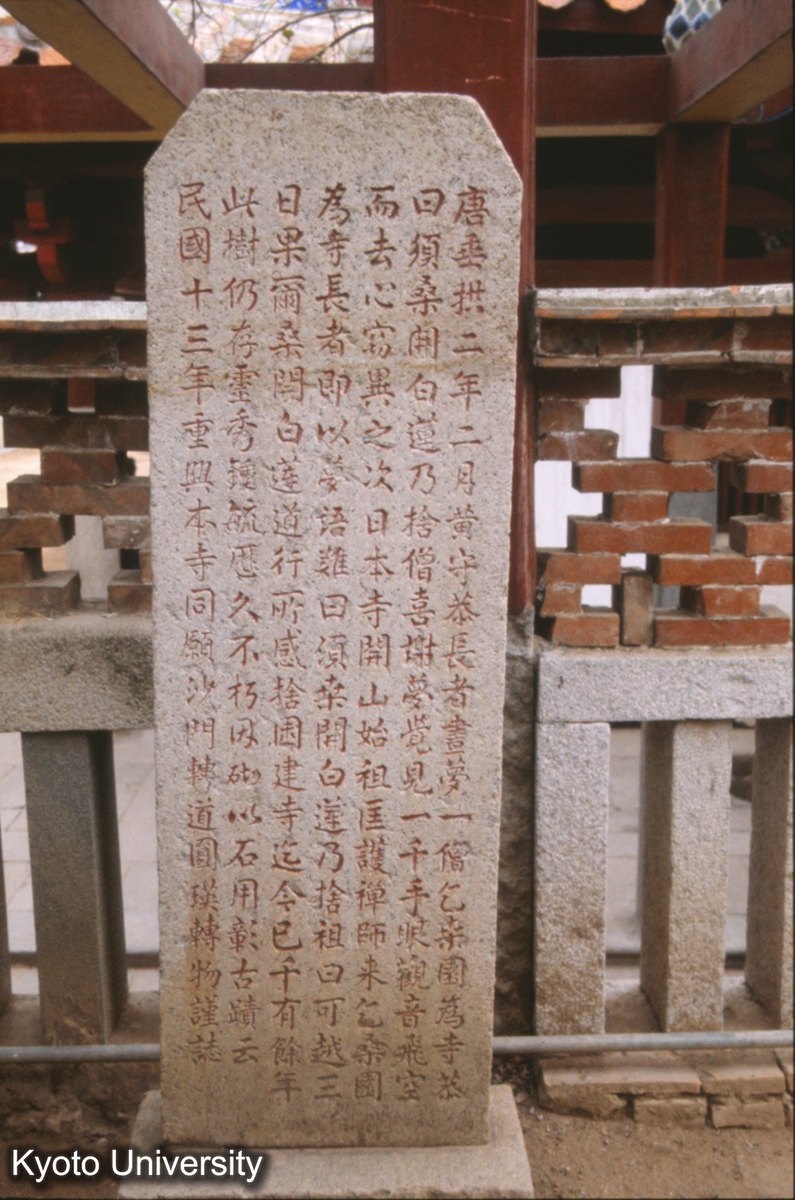 唐垂拱二年二月黃守恭長者晝夢一僧乞桑園為寺恭
曰須桑開白蓮乃捨僧喜謝夢覺見一千手眼觀音飛空
而去心竊異之次日本寺開山始祖匡護禪師来乞桑園
為寺長者即以夢語難曰須桑開白蓮乃捨祖曰可越三
日果爾桑開白蓮道行所感捨園建寺迄今已千有餘年
此樹仍存靈秀鍾毓歷久不朽因砌以石用彰古蹟云
民國十三年重興本寺同願沙門轉道圓瑛轉物謹誌
Kyoto University